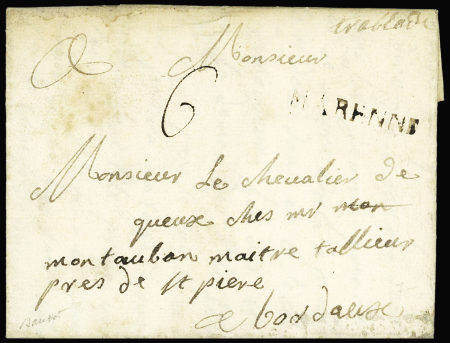 A Monsieur
6
MARENNE
Monsieur Le chevalier de
queux ches mr mon
montauban maitre tallieur
pres de st piere
a bordaux